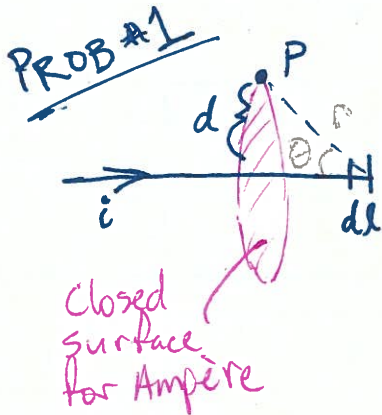 PROB #1
P
d
r
θ
i
dl
Closed
surface
for Ampère